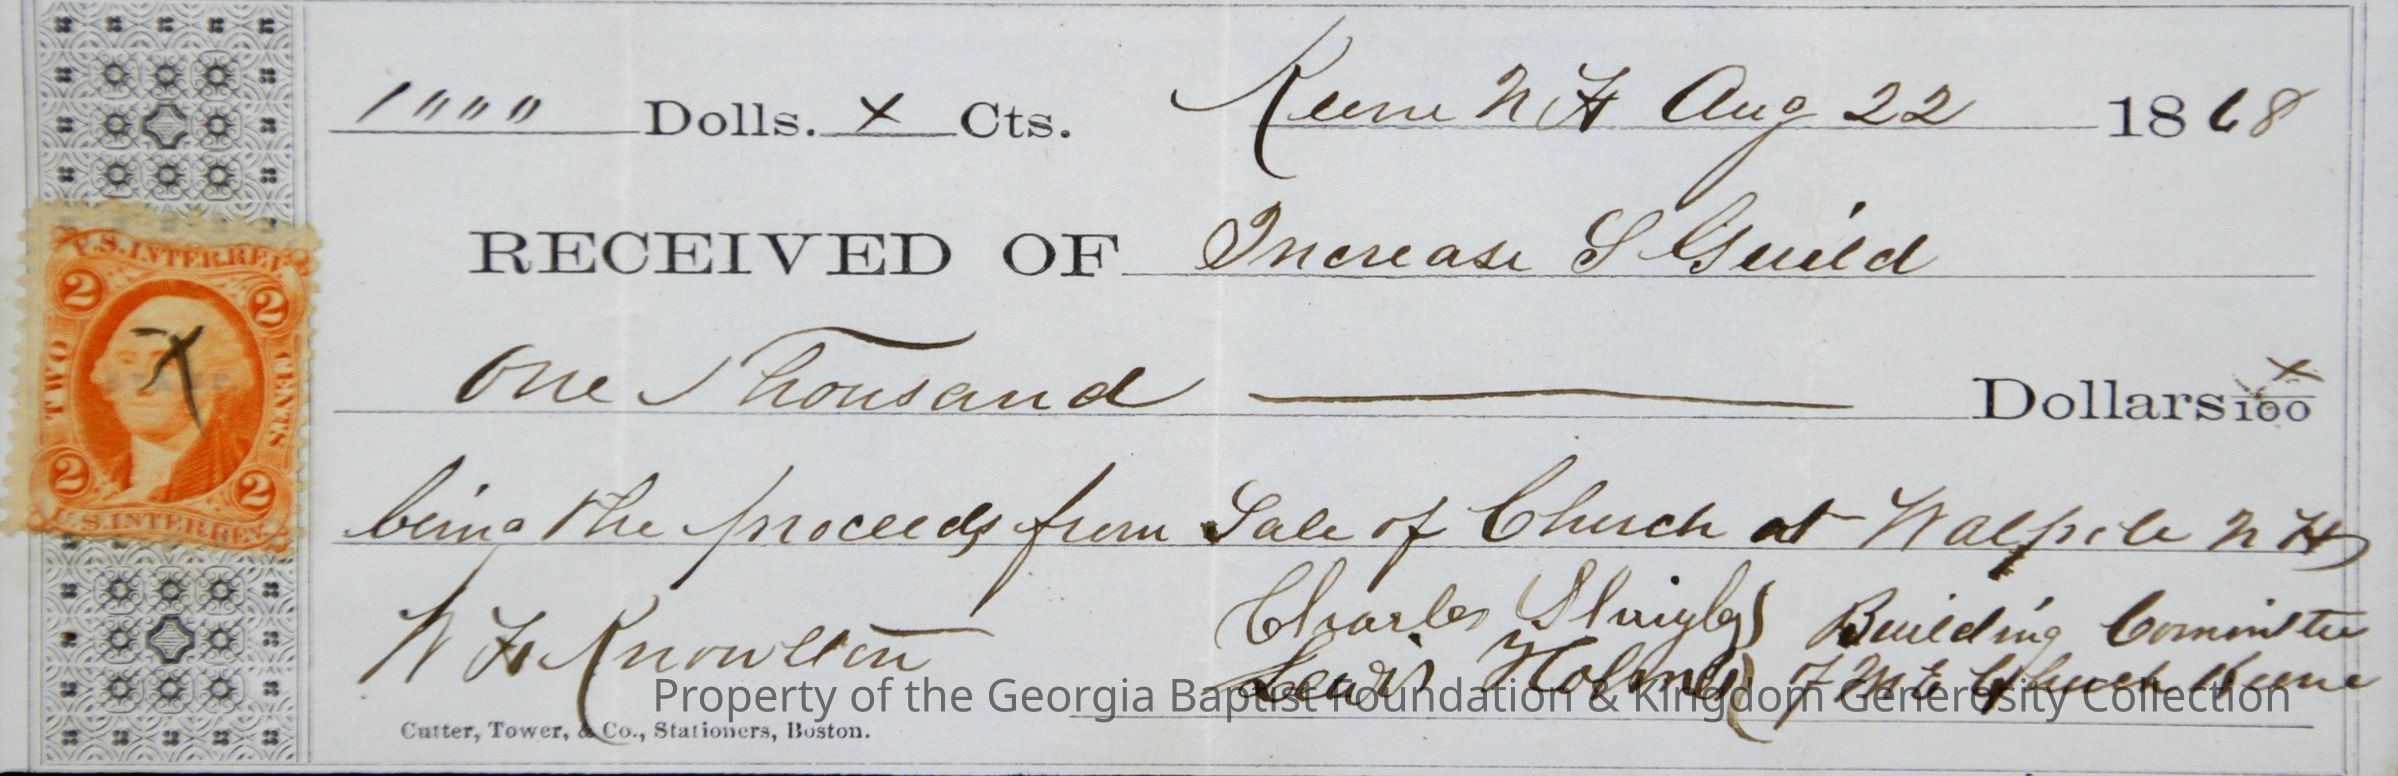 1000 Dolls. x Cts. Keene N H Aug 22 1868
RECEIVED OF Increase S Guild
One Thousand Dollars x/100
being the proceeds from Sale of Church at Walpole N H
Charles Building Committee
W H Knowlton
Lewis Holmes of M E Church Keene
Property of the Georgia Baptist Foundation & Kingdom Generosity Collection
Cutter, Tower, & Co., Stationers, Boston.
U.S. INTER. REV.
2 2
TWO CENTS
x
2 2
U.S. INTER. REV.